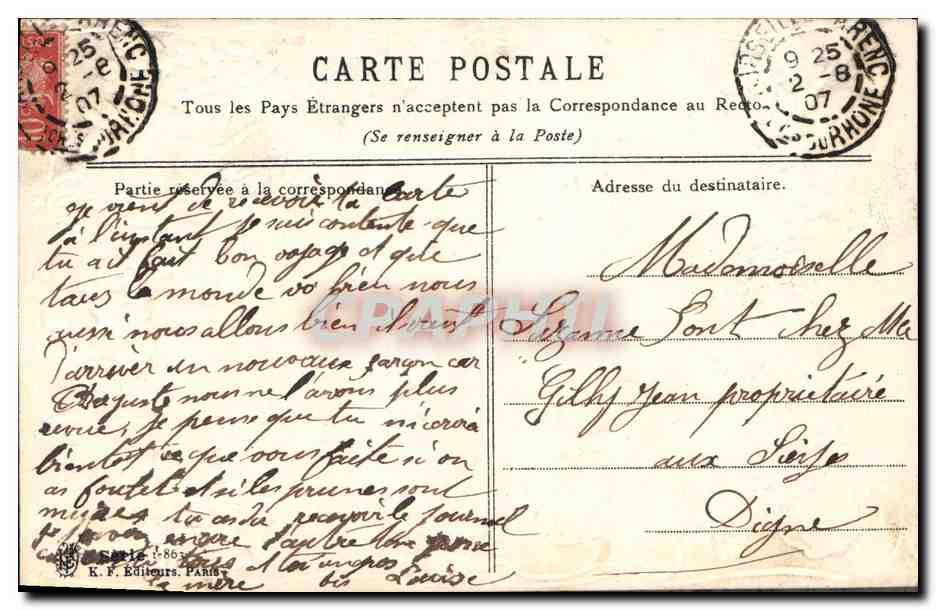 CARTE POSTALE
Tous les Pays Étrangers n'acceptent pas la Correspondance au Recto
(Se renseigner à la Poste)
Partie réservée à la correspondance
Adresse du destinataire.
9 25
2 -8
07
9 25
2 -8
07
DU RHONE
je vient de recevoir ta Carte
à l'instant je suis contente que
tu ait fait bon voyage et que
tous le monde va bien nous
aussi nous allons bien
d'arriver un nouveaux garçon car
Auguste nous ne l'avons plus
revue, je pense que tu
bientot ce que vous faite si on
as et si les prunes sont
mures tu as du recevoir le journal
je encore l'autre
et
ta mère Louise
Mademoiselle
Suzanne Pont chez Mr
Gilly Jean propriétaire
aux Sièyes
Digne
CPAPHIL
Série 1-863
K. F. Editeurs, PARIS